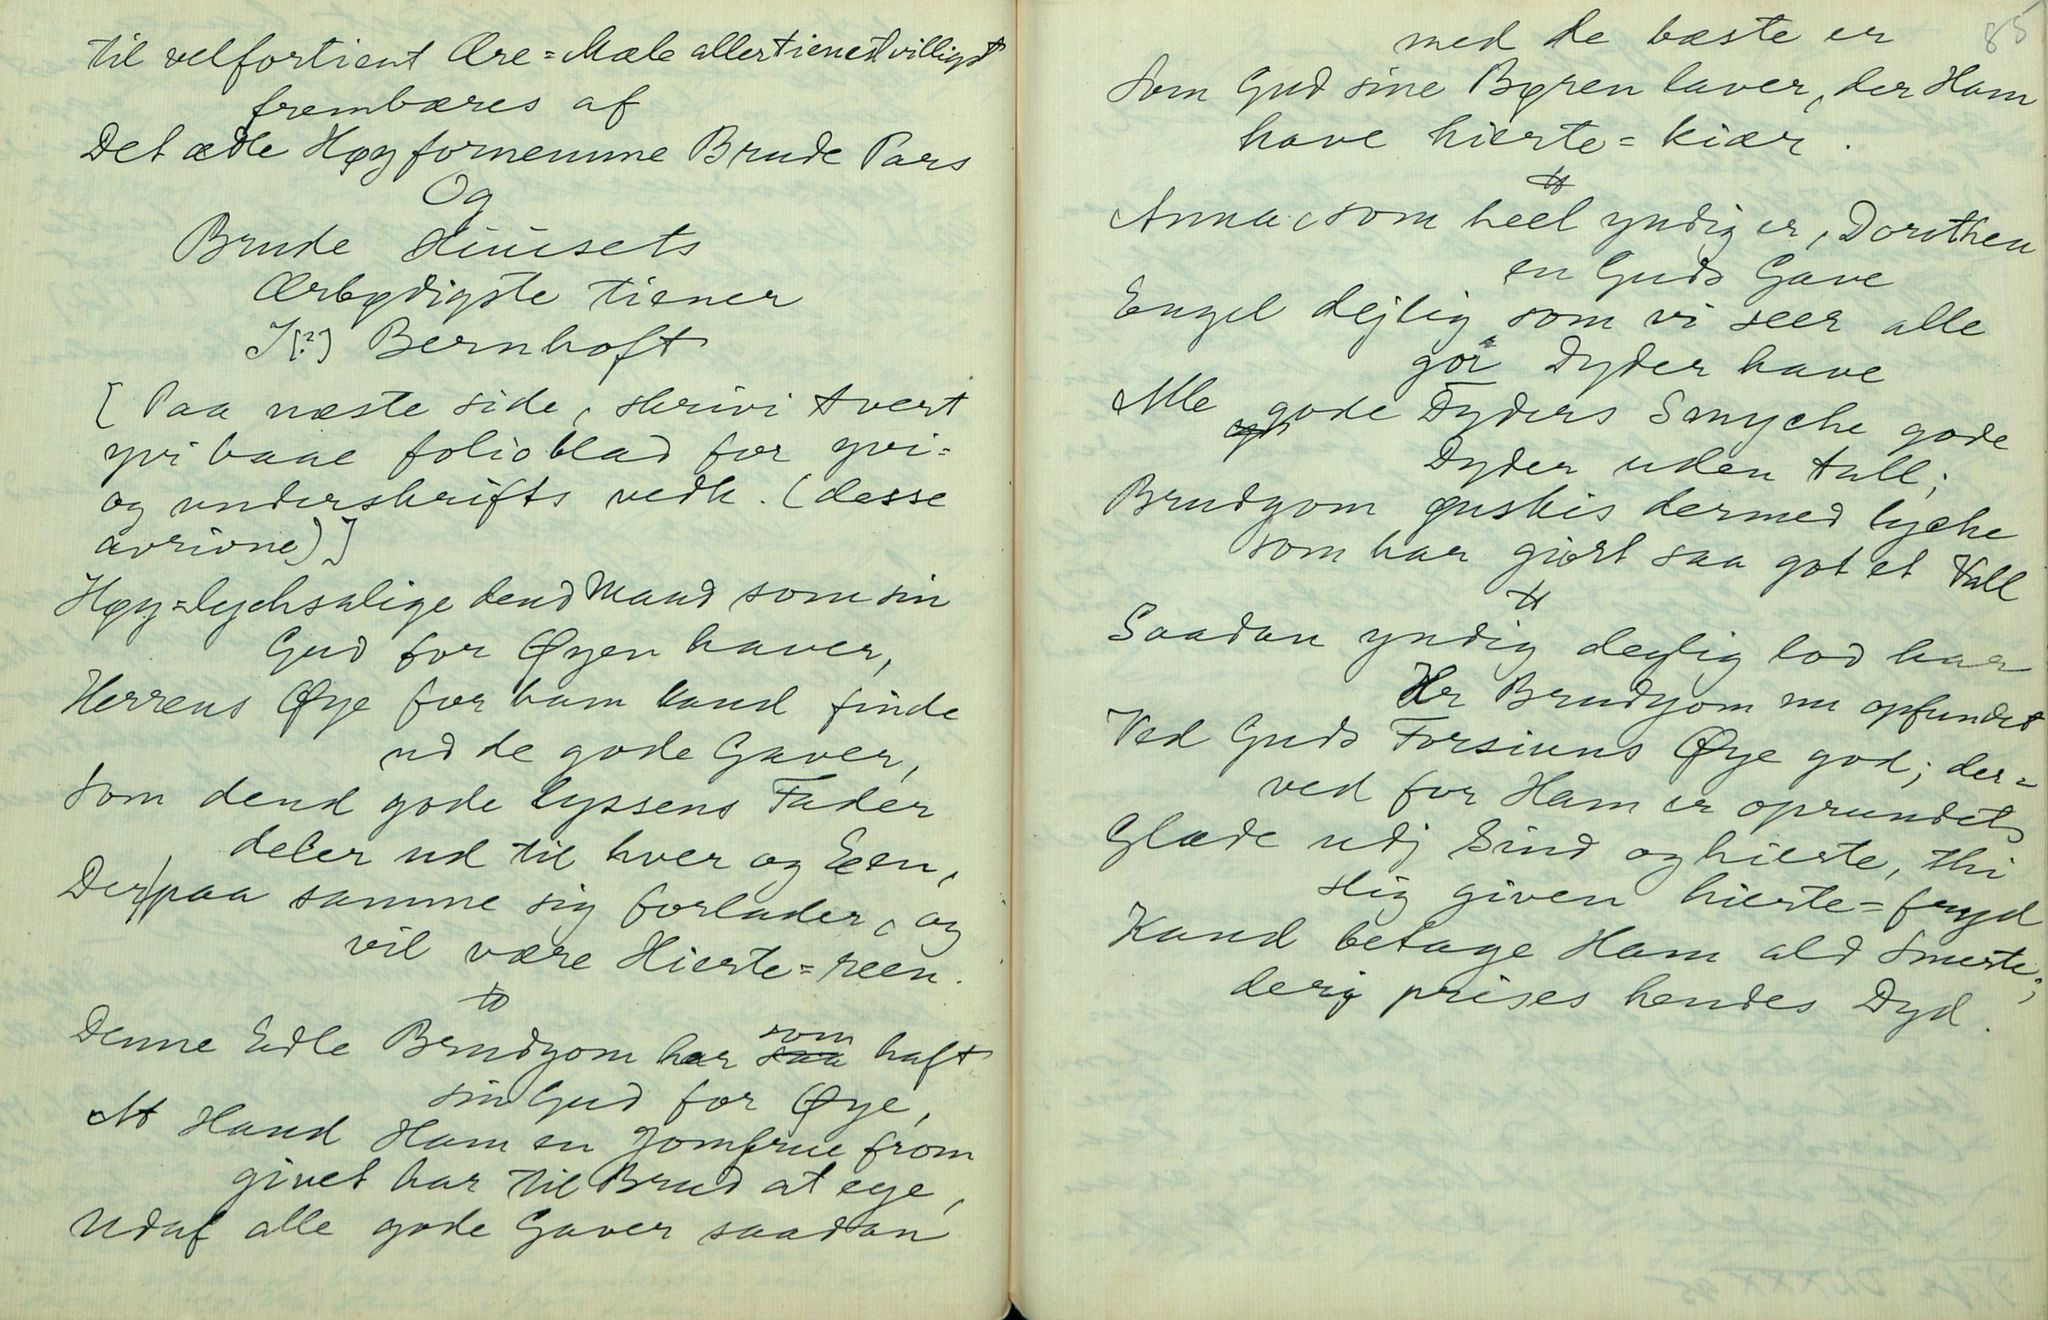 til velfortient Ære=Mæle allertienestvilligst
frembæres af
Det ædle Høyfornemme Brude Pars
Og
Brude Huusets
Ærbødigste tiener
J(?) Bernhoft
[Paa næste side, skrivi tvert
yvi baae folioblad for yvi=
og underskrifts vedk. (desse
avrivne)]
Høy=lychsalige dend Mand som sin
Gud for Øyen haver,
Herrens Øye for ham kand finde
ud de gode Gaver,
Som dend gode lyssens Fader
deler ud til hver og Een,
Der paa samme sig forlader, og
vil være Hierte=reen.
Denne Edle Brudgom har som saa haft
sin Gud for Øye,
At Hand Ham en Jomfrue from
givet har til Brud at eye,
Udaf alle gode Gaver saadan
85
med de bæste er
Som Gud sine Børen laver, der Ham
have hierte=kiær.
Anna, som heel yndig er, Dorothea
en Guds Gave
Engel dejlig som vi seer alle
gór Dyder have
Alle gode Dyders Smyche gode
Dyder uden tall;
Brudgom ønskis dermed lyche
som har giort saa got et Vall
Saadan yndig deylig lod har
Hr Brudgom nu opfundet
Ved Guds Forsiuns Øye god; der=
ved for Ham er oprundet
Glæde udj Sind og hierte, thi
slig given hierte=fryd
Kand betage Ham ald Smerte;
derj prises hendes Dyd.